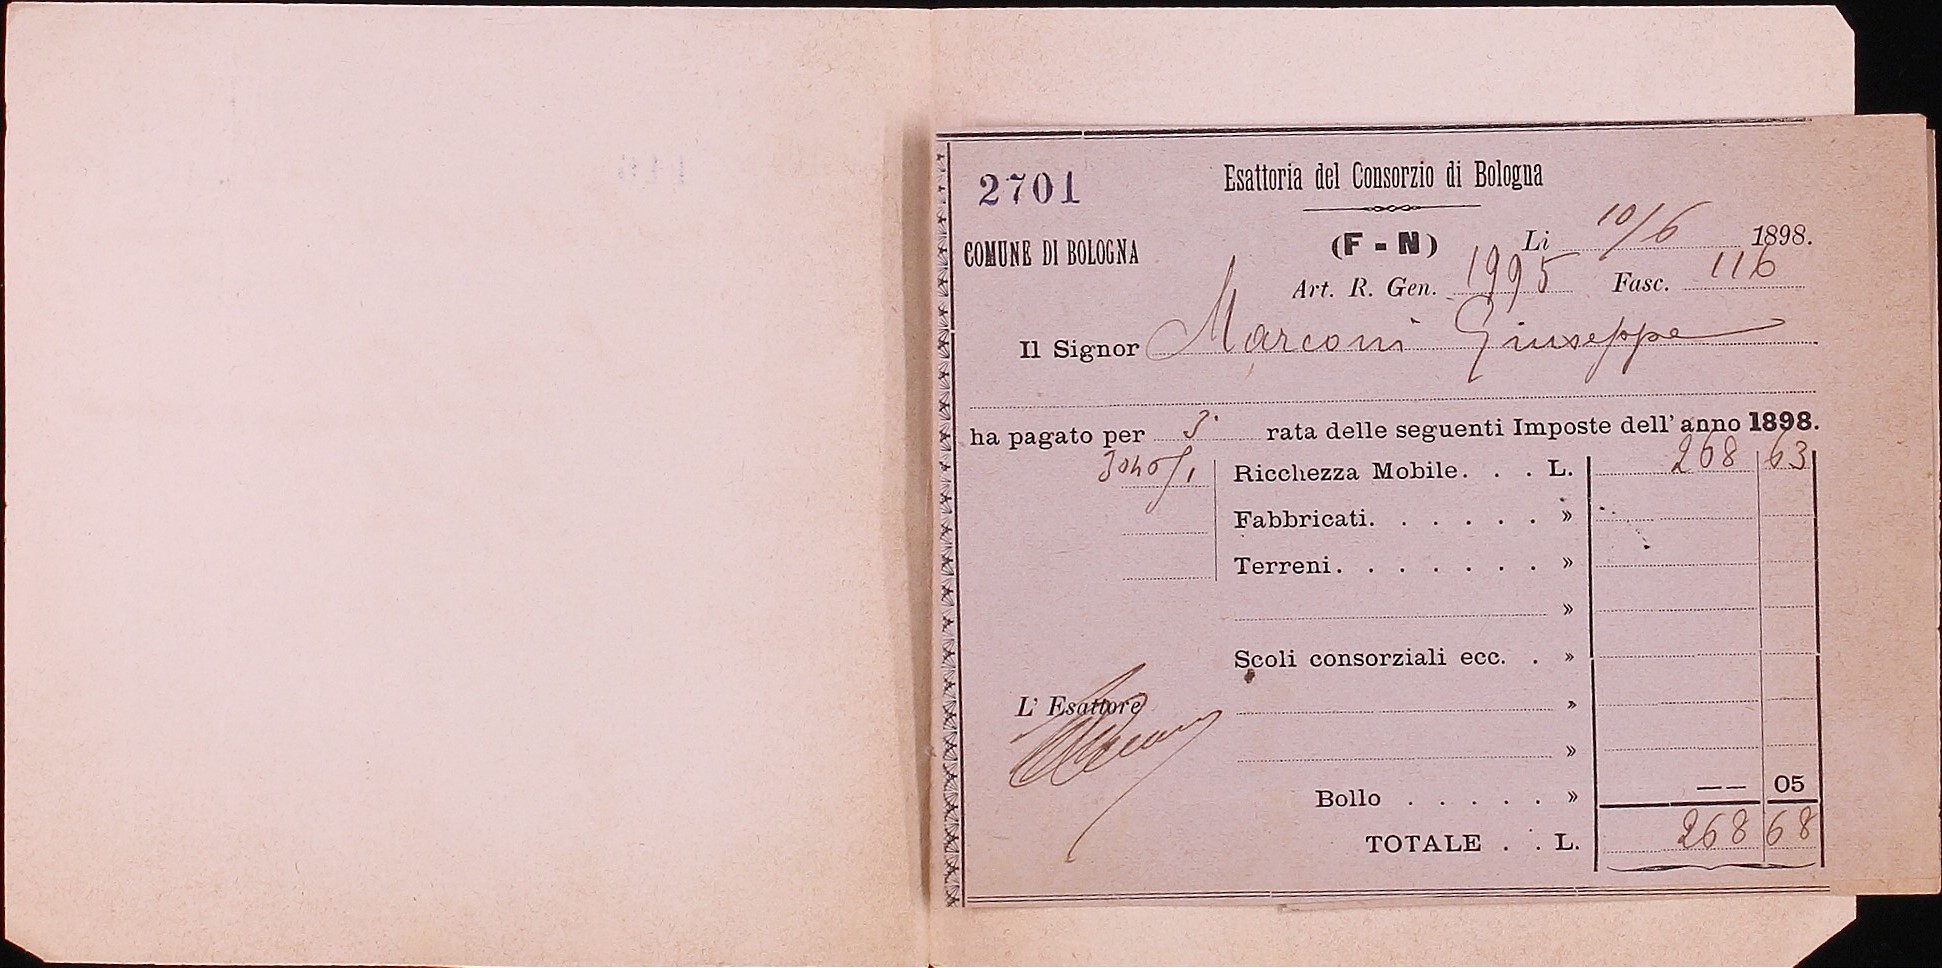 2701
Esattoria del Consorzio di Bologna
COMUNE DI BOLOGNA
(F - N)
Li 10/6 1898.
Art. R. Gen. 1995 Fasc. 116
Il Signor Marconi Giuseppe
ha pagato per 3ª rata delle seguenti Imposte dell' anno 1898.
Ricchezza Mobile. . . L. 268 63
Fabbricati. . . . . . »
Terreni. . . . . . . »
»
Scoli consorziali ecc. . »
L' Esattore
»
»
Bollo . . . . . » — — 05
TOTALE . . L. 268 68